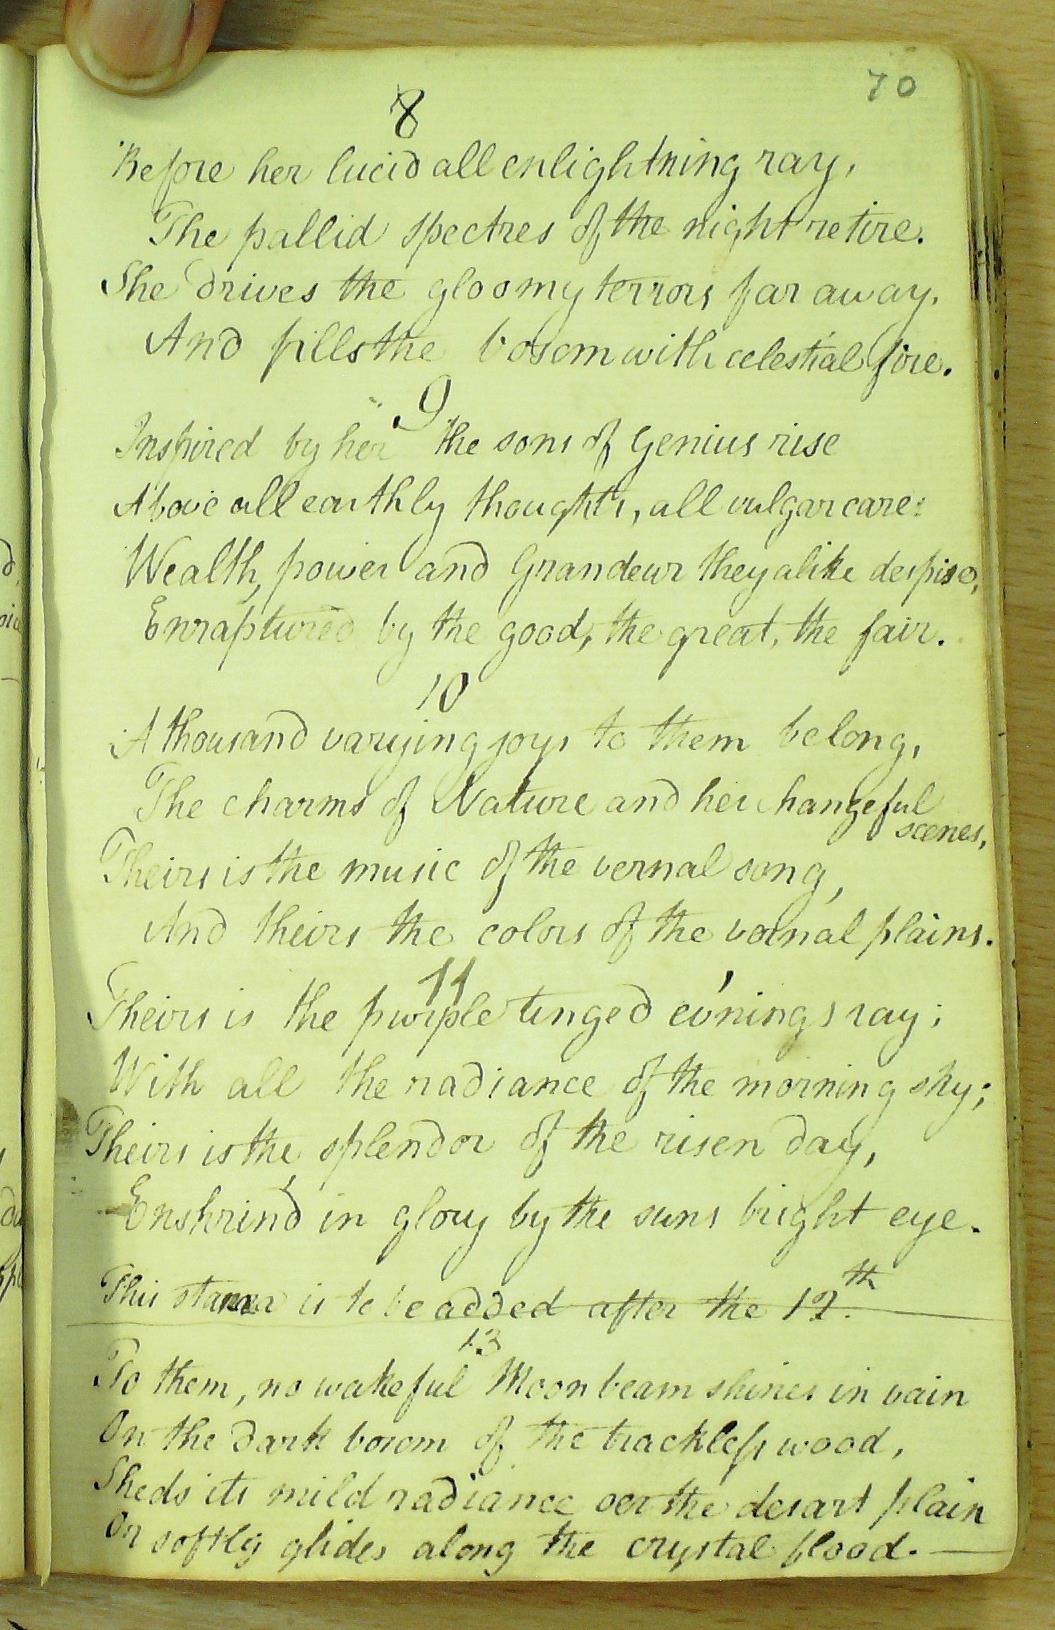 70
8
Before her lucid all enlightning ray,
The pallid spectres of the night retire.
She drives the gloomy terrors far away,
And fills the bosom with celestial fire.
9
Inspired by her the sons of Genius rise
Above all earthly thoughts, all vulgar care:
Wealth, power and Grandeur they alike despise,
Enraptured by the good, the great, the fair.
10
A thousand varying joys to them belong,
The charms of Nature and her changeful
scenes,
Theirs is the music of the vernal song,
And theirs the colors of the vernal plains.
11
Theirs is the purple tinged ev'nings ray;
With all the radiance of the morning sky;
Theirs is the splendor of the risen day,
Enshrin'd in glory by the suns bright eye.
This stanza is to be added after the 12th.
13
To them, no wakeful Moon beam shines in vain
On the dark bosom of the trackless wood,
Sheds its mild radiance oer the desart plain
Or softly glides along the crystal flood.